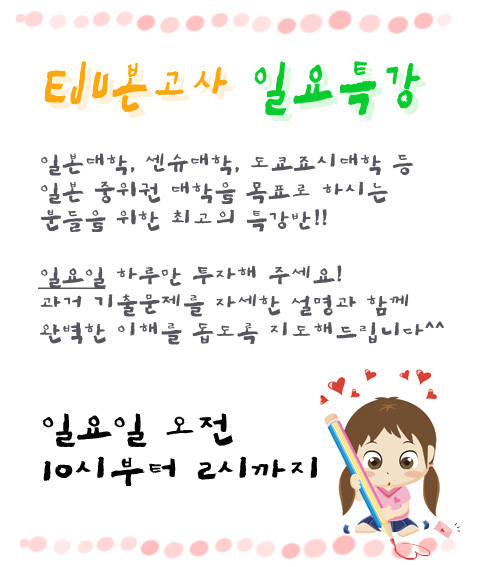 EJU본고사 일요특강
일본대학, 센슈대학, 도쿄죠시대학 등
일본 중위권 대학을 목표로 하시는
분들을 위한 최고의 특강반!!
일요일 하루만 투자해 주세요!
과거 기출문제를 자세한 설명과 함께
완벽한 이해를 돕도록 지도해드립니다^^
일요일 오전
10시부터 2시까지